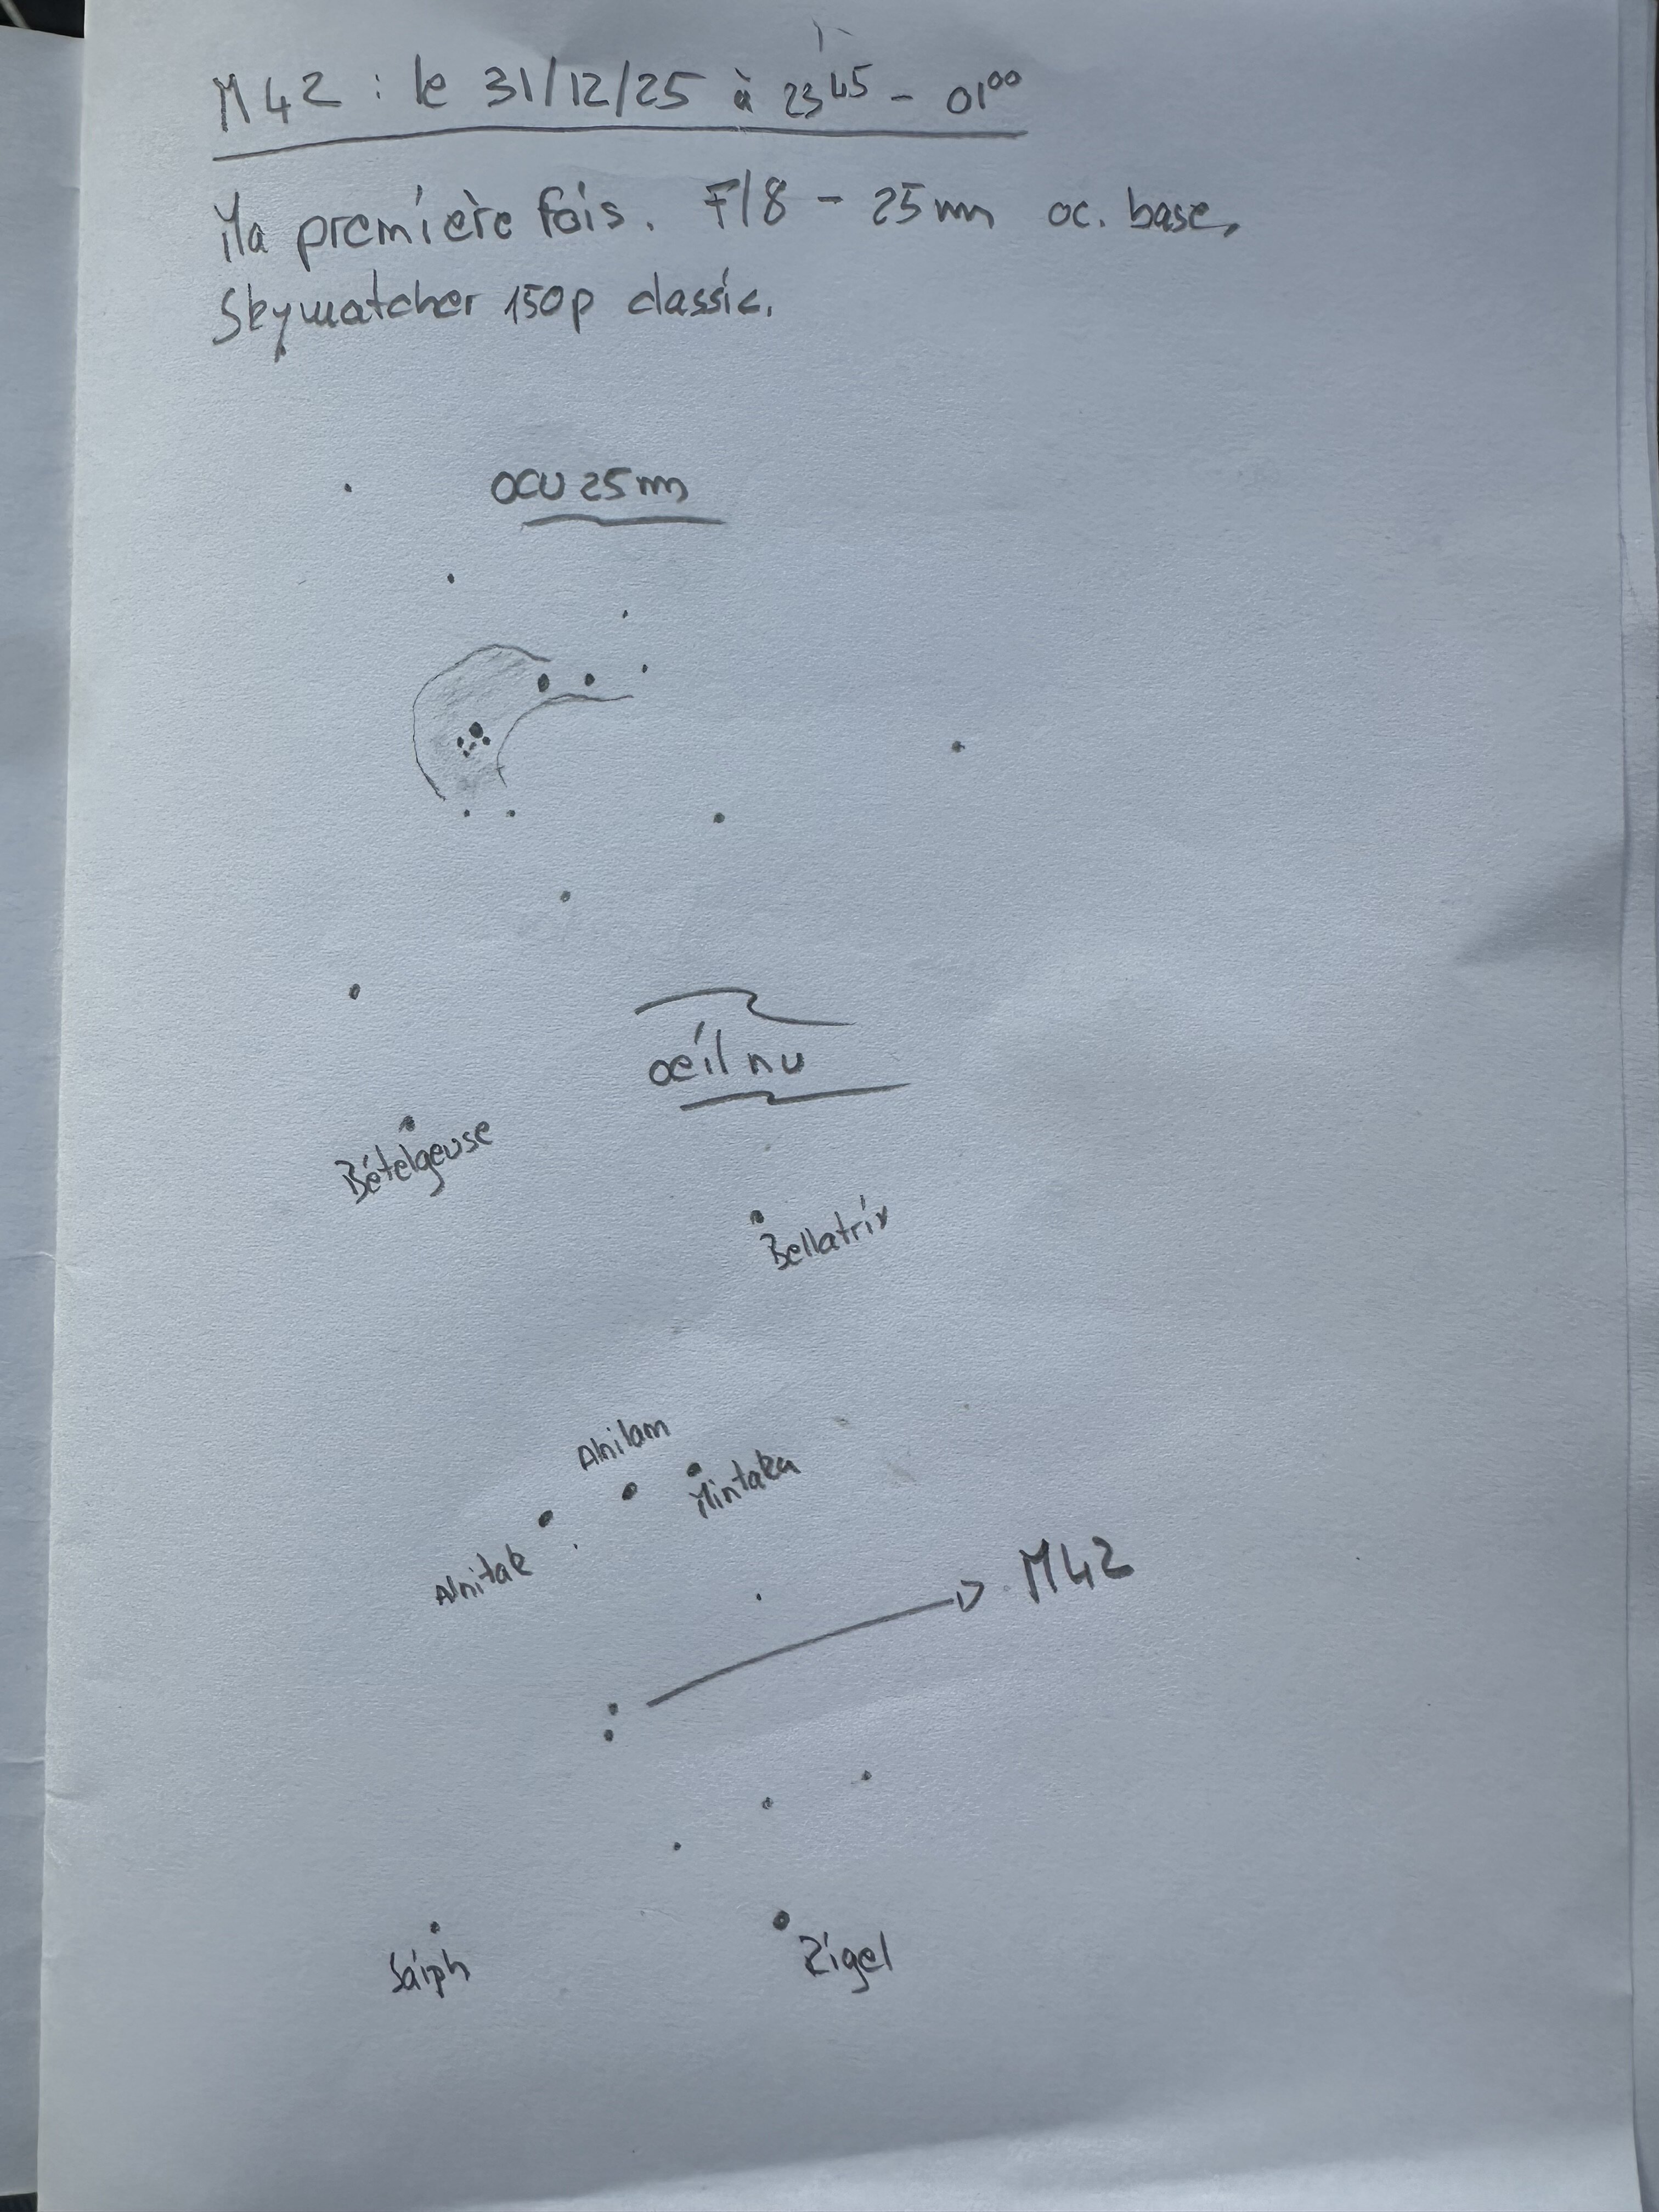 M42 : le 31/12/25 à 23⁴⁵ - 01⁰⁰
Ma première fois. F/8 - 25mm oc. base,
Skywatcher 150p classic.
OCU 25mm
oeil nu
Bételgeuse
Bellatrix
Alnilam
Mintaka
Alnitak
M42
Saiph
Rigel